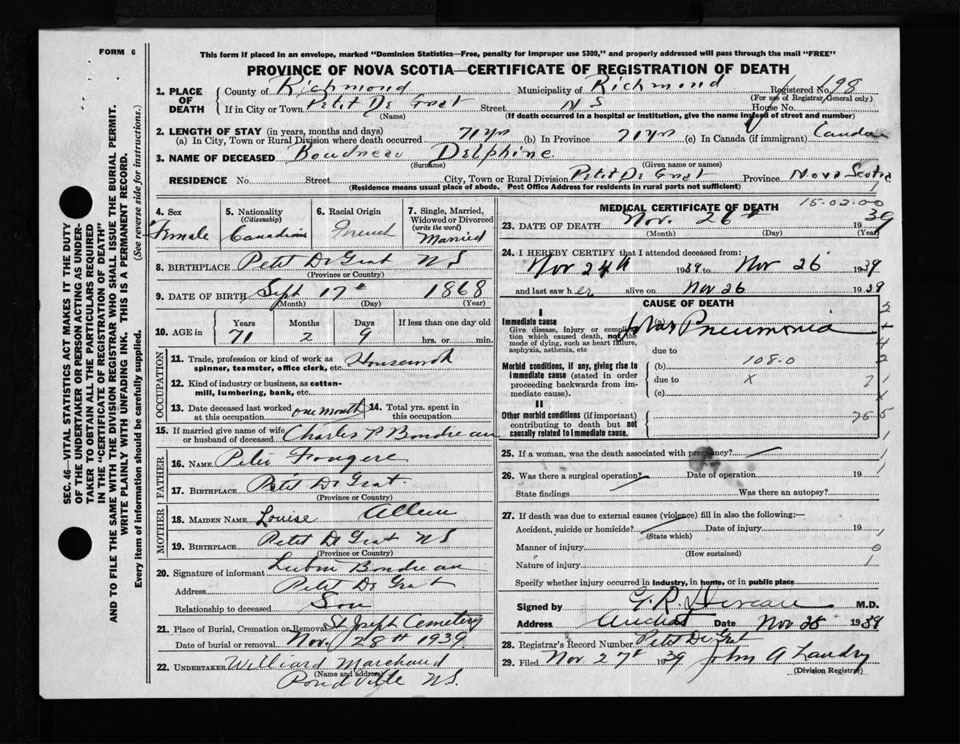 FORM 6
This form if placed in an envelope, marked "Dominion Statistics—Free, penalty for improper use $300," and properly addressed will pass through the mail "FREE"
PROVINCE OF NOVA SCOTIA—CERTIFICATE OF REGISTRATION OF DEATH
SEC. 46—VITAL STATISTICS ACT MAKES IT THE DUTY
OF THE UNDERTAKER OR PERSON ACTING AS UNDER-
TAKER TO OBTAIN ALL THE PARTICULARS REQUIRED
IN THE "CERTIFICATE OF REGISTRATION OF DEATH"
AND TO FILE THE SAME WITH THE DIVISION REGISTRAR WHO SHALL ISSUE THE BURIAL PERMIT.
WRITE PLAINLY WITH UNFADING INK. THIS IS A PERMANENT RECORD.
Every item of information should be carefully supplied. (See reverse side for instructions.)
1. PLACE OF DEATH County of Richmond Municipality of Richmond Registered No. 198
(For use of Registrar General only)
If in City or Town Petit De Grat Street N S House No.
(Name) (If death occurred in a hospital or institution, give the name instead of street and number)
2. LENGTH OF STAY (in years, months and days)
(a) In City, Town or Rural Division where death occurred 71 yrs (b) In Province 71 yrs (c) In Canada (if immigrant) Canada
3. NAME OF DECEASED Boudreau Delphine
(Surname) (Given name or names)
RESIDENCE No. Street City, Town or Rural Division Petit De Grat Province Nova Scotia
(Residence means usual place of abode. Post Office Address for residents in rural parts not sufficient)
4. Sex Female
5. Nationality (Citizenship) Canadian
6. Racial Origin French
7. Single, Married, Widowed or Divorced (write the word) Married
8. BIRTHPLACE Petit De Grat N S
(Province or Country)
9. DATE OF BIRTH Sept 17th 1868
(Month) (Day) (Year)
10. AGE in Years Months Days If less than one day old
71 2 9 hrs. or min.
OCCUPATION
11. Trade, profession or kind of work as spinner, teamster, office clerk, etc. Housework
12. Kind of industry or business, as cotton-mill, lumbering, bank, etc.
13. Date deceased last worked at this occupation one month 14. Total yrs. spent in this occupation
15. If married give name of wife or husband of deceased Charles P Boudreau
FATHER
16. NAME Fougere
17. BIRTHPLACE Petit De Grat
(Province or Country)
MOTHER
18. MAIDEN NAME Louise
19. BIRTHPLACE Petit De Grat N S
(Province or Country)
20. Signature of informant Boudreau
Address Petit De Grat
Relationship to deceased Son
21. Place of Burial, Cremation or Removal St Joseph Cemetery
Date of burial or removal Nov. 28th 1939
22. UNDERTAKER Williard Marchand
(Name and address)
Pondville N.S.
MEDICAL CERTIFICATE OF DEATH 15-02-00
23. DATE OF DEATH Nov. 26th 1939
(Month) (Day) (Year)
24. I HEREBY CERTIFY that I attended deceased from:
Nov 24th 1939 to Nov 26 1939
and last saw her alive on Nov 26 1939
CAUSE OF DEATH
I
Immediate cause (a) Lobar Pneumonia
Give disease, injury or complication which caused death, not the mode of dying, such as heart failure, asphyxia, asthenia, etc
due to
Morbid conditions, if any, giving rise to immediate cause (stated in order proceeding backwards from immediate cause).
(b) 108-0
due to x
(c)
II
Other morbid conditions (if important) contributing to death but not causally related to immediate cause.
25. If a woman, was the death associated with pregnancy?
26. Was there a surgical operation? Date of operation 19
State findings Was there an autopsy?
27. If death was due to external causes (violence) fill in also the following:—
Accident, suicide or homicide? Date of injury 19
(State which)
Manner of injury
(How sustained)
Nature of injury
Specify whether injury occurred in industry, in home, or in public place
Signed by M.D.
Address Arichat Date Nov 1939
28. Registrar's Record Number Petit De Grat
29. Filed Nov 27th 1939 John A Landry
(Division Registrar)